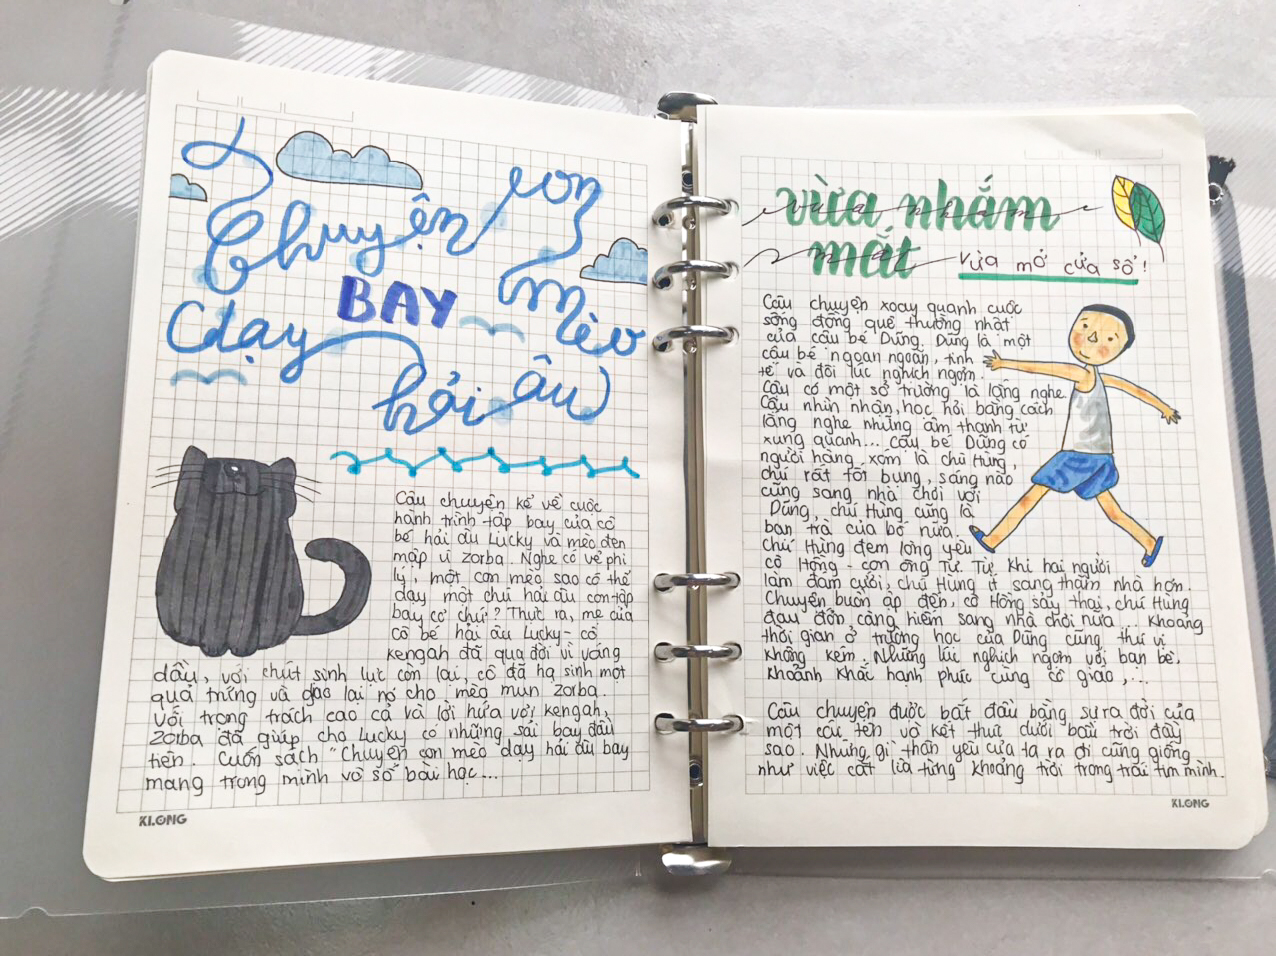 Chuyện con mèo
dạy hải âu
BAY
Câu chuyện kể về cuộc
hành trình tập bay của cô
bé hải âu Lucky và mèo đen
mập ú Zorba. Nghe có vẻ phi
lý, một con mèo sao có thể
dạy một chú hải âu con tập
bay cơ chứ? Thực ra, mẹ của
cô bé hải âu Lucky - cô
kengah đã qua đời vì váng
dầu, với chút sinh lực còn lại, cô đã hạ sinh một
quả trứng và giao lại nó cho mèo mun Zorba.
Với trọng trách cao cả và lời hứa với kengah,
Zorba đã giúp cho Lucky có những sải bay đầu
tiên. Cuốn sách "Chuyện con mèo dạy hải âu bay
mang trong mình vô số bài học...
KLONG
vừa nhắm
mắt
vừa mở cửa sổ!
Câu chuyện xoay quanh cuộc
sống đồng quê thường nhật
của cậu bé Dũng. Dũng là một
cậu bé ngoan ngoãn, tinh
tế và đôi lúc nghịch ngợm.
Cậu có một sở trường là lắng nghe.
Cậu nhìn nhận, học hỏi bằng cách
lắng nghe những âm thanh từ
xung quanh... Cậu bé Dũng có
người hàng xóm là chú Hùng,
chú rất tốt bụng, sáng nào
cũng sang nhà chơi với
Dũng, chú Hùng cũng là
bạn trà của bố nữa.
Chú Hùng đem lòng yêu
cô Hồng - con ông Tư. Từ khi hai người
làm đám cưới, chú Hùng ít sang thăm nhà hơn.
Chuyện buồn ập đến, cô Hồng sảy thai, chú Hùng
đau đớn càng hiếm sang nhà chơi nữa... Khoảng
thời gian ở trường học của Dũng cũng thú vị
không kém. Những lúc nghịch ngợm với bạn bè,
khoảnh khắc hạnh phúc cùng cô giáo,...
Câu chuyện được bắt đầu bằng sự ra đời của
một cái tên và kết thúc dưới bầu trời đầy
sao. Những gì thân yêu của ta ra đi cũng giống
như việc cắt lìa từng khoảng trời trong trái tim mình.
KLONG